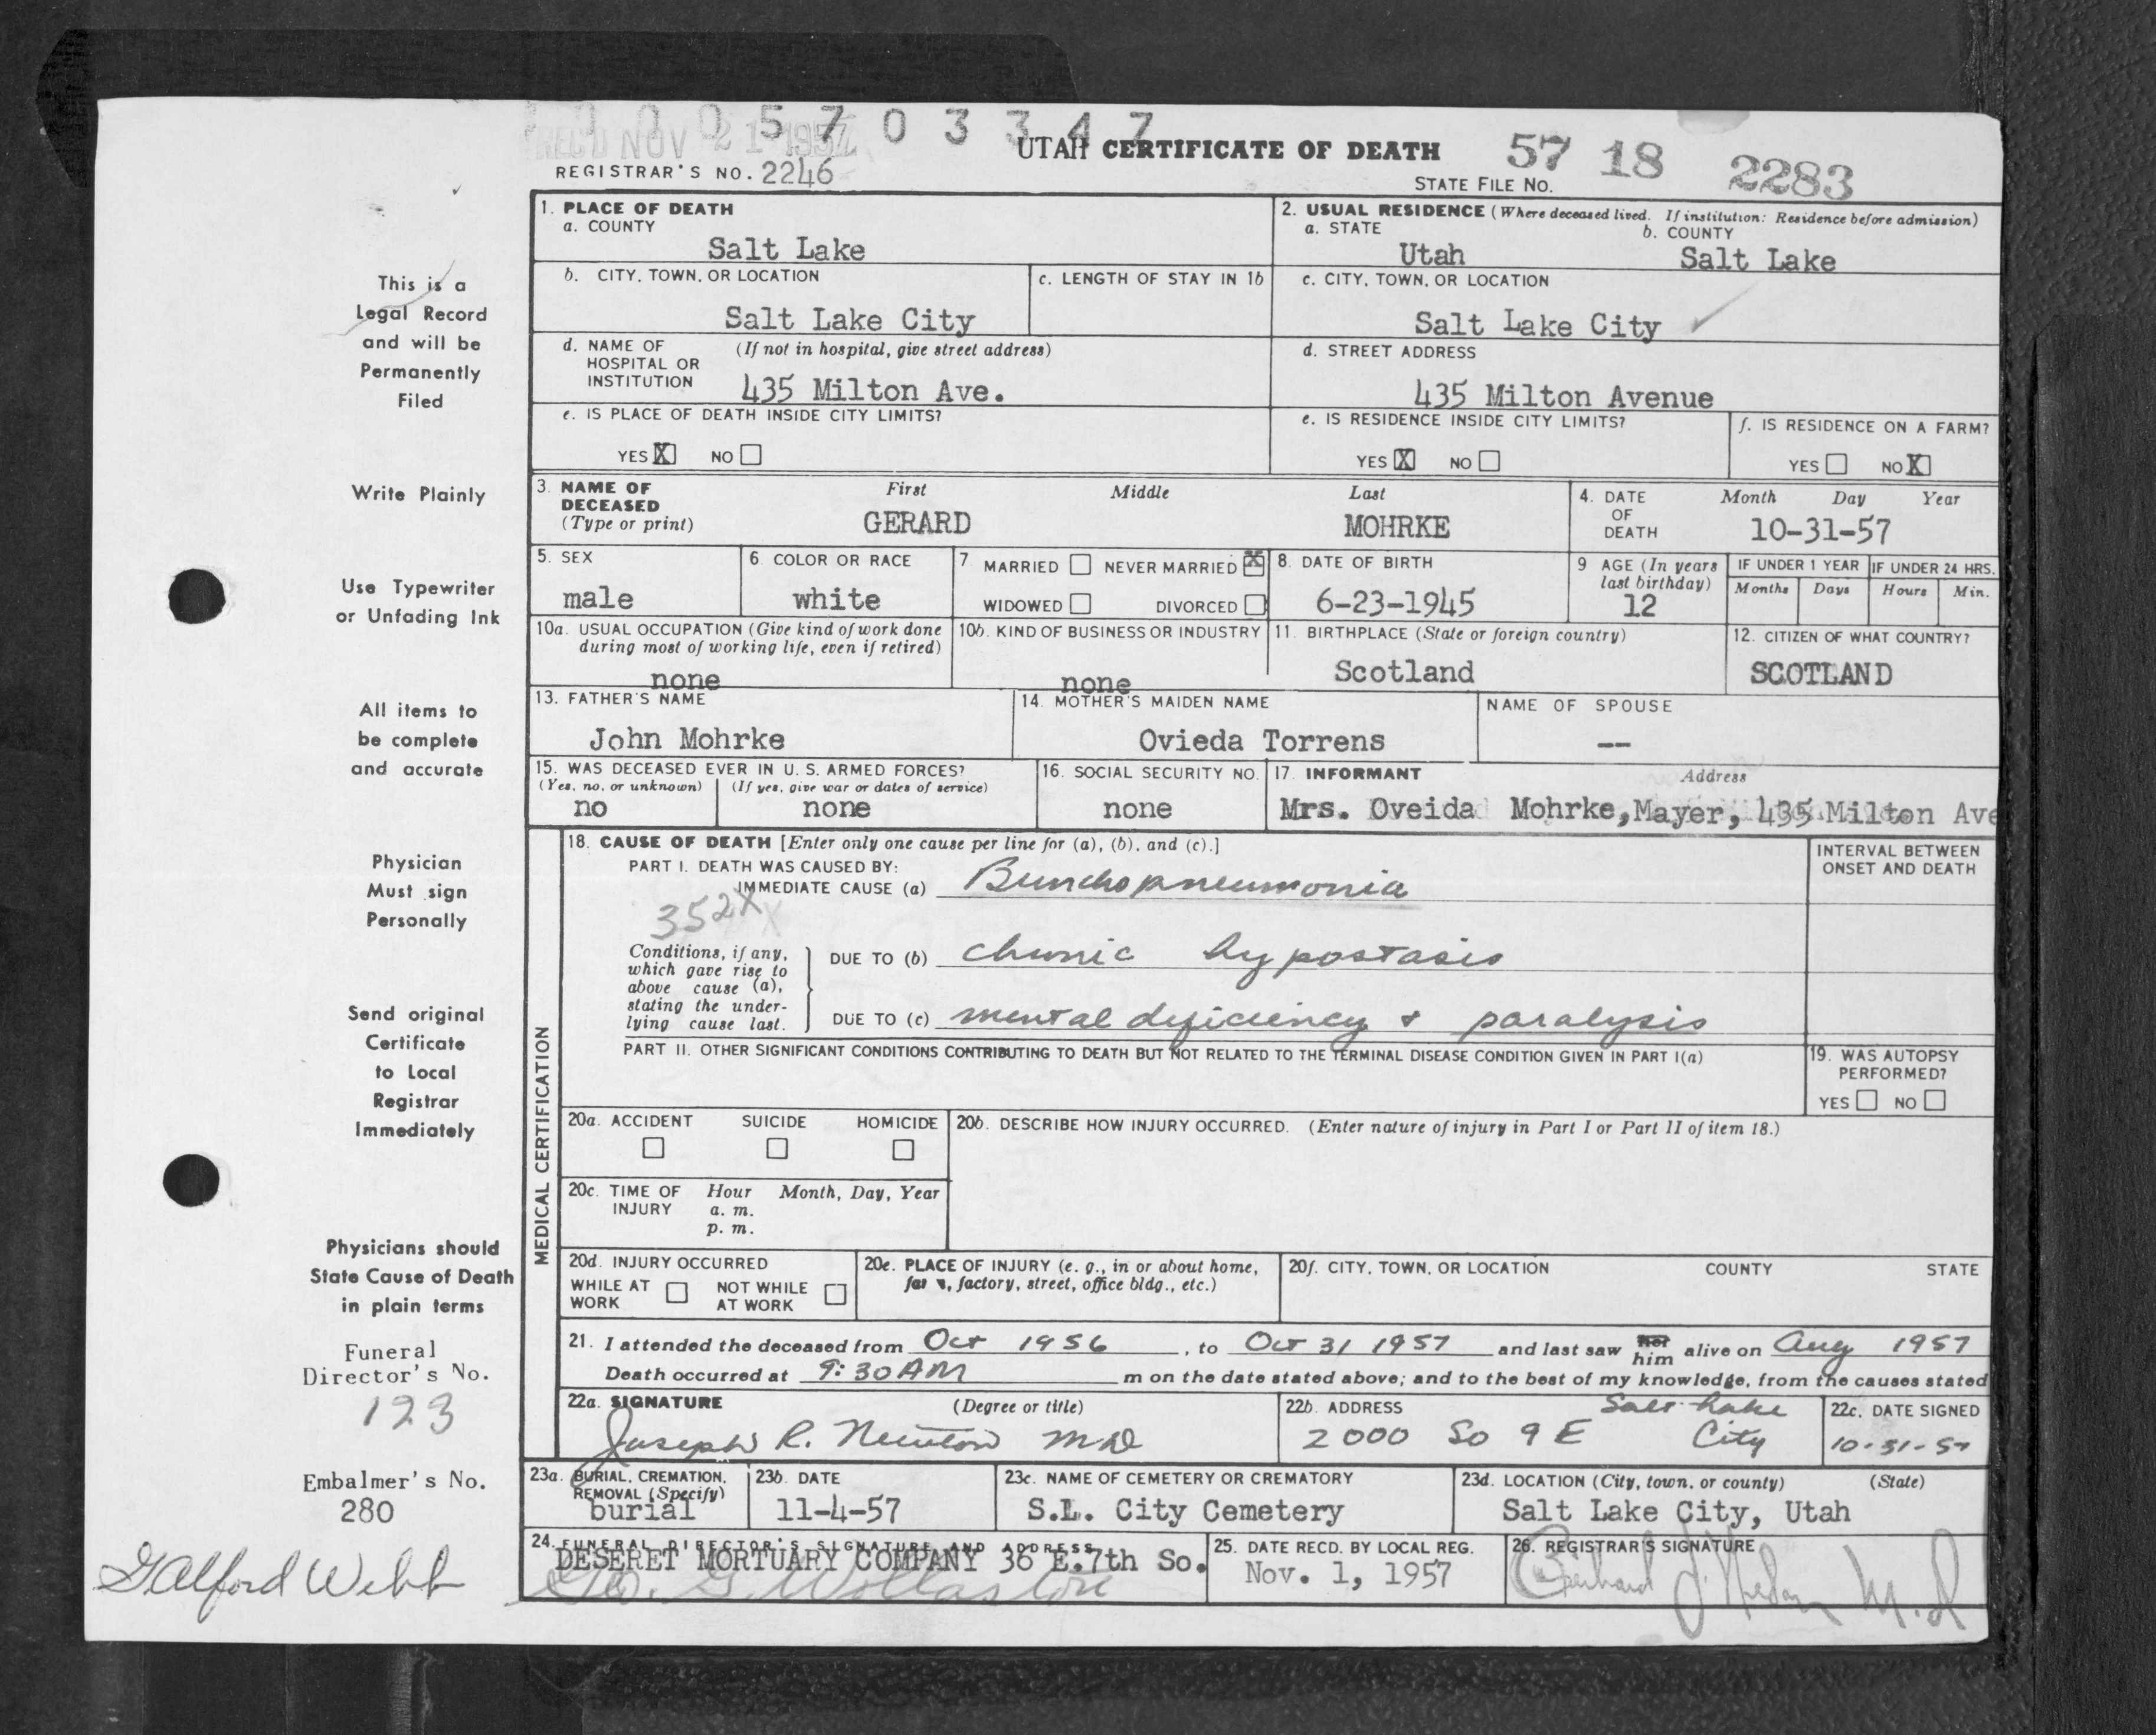 1005703347
REC'D NOV 21 1957
UTAH CERTIFICATE OF DEATH 57 18 2283
REGISTRAR'S NO. 2246
STATE FILE NO.
1. PLACE OF DEATH
a. COUNTY
Salt Lake
2. USUAL RESIDENCE (Where deceased lived. If institution: Residence before admission)
a. STATE b. COUNTY
Utah Salt Lake
b. CITY, TOWN, OR LOCATION
Salt Lake City
c. LENGTH OF STAY IN 1b
c. CITY, TOWN, OR LOCATION
Salt Lake City
d. NAME OF (If not in hospital, give street address)
HOSPITAL OR
INSTITUTION 435 Milton Ave.
d. STREET ADDRESS
435 Milton Avenue
e. IS PLACE OF DEATH INSIDE CITY LIMITS?
YES X NO
e. IS RESIDENCE INSIDE CITY LIMITS?
YES X NO
f. IS RESIDENCE ON A FARM?
YES NO X
3. NAME OF First Middle Last
DECEASED
(Type or print) GERARD MOHRKE
4. DATE Month Day Year
OF
DEATH 10-31-57
5. SEX
male
6. COLOR OR RACE
white
7. MARRIED NEVER MARRIED X
WIDOWED DIVORCED
8. DATE OF BIRTH
6-23-1945
9 AGE (In years
last birthday)
12
IF UNDER 1 YEAR
Months Days
IF UNDER 24 HRS.
Hours Min.
10a. USUAL OCCUPATION (Give kind of work done
during most of working life, even if retired)
none
10b. KIND OF BUSINESS OR INDUSTRY
none
11. BIRTHPLACE (State or foreign country)
Scotland
12. CITIZEN OF WHAT COUNTRY?
SCOTLAND
13. FATHER'S NAME
John Mohrke
14. MOTHER'S MAIDEN NAME
Ovieda Torrens
NAME OF SPOUSE
--
15. WAS DECEASED EVER IN U. S. ARMED FORCES?
(Yes, no, or unknown) (If yes, give war or dates of service)
no none
16. SOCIAL SECURITY NO.
none
17. INFORMANT Address
Mrs. Oveida Mohrke, Mayer, 435 Milton Ave
MEDICAL CERTIFICATION
18. CAUSE OF DEATH [Enter only one cause per line for (a), (b), and (c).]
PART I. DEATH WAS CAUSED BY:
IMMEDIATE CAUSE (a) Bronchopneumonia
352X
INTERVAL BETWEEN
ONSET AND DEATH
Conditions, if any,
which gave rise to
above cause (a),
stating the under-
lying cause last.
DUE TO (b) chronic hypostasis
DUE TO (c) mental deficiency & paralysis
PART II. OTHER SIGNIFICANT CONDITIONS CONTRIBUTING TO DEATH BUT NOT RELATED TO THE TERMINAL DISEASE CONDITION GIVEN IN PART I(a)
19. WAS AUTOPSY
PERFORMED?
YES NO
20a. ACCIDENT SUICIDE HOMICIDE
20b. DESCRIBE HOW INJURY OCCURRED. (Enter nature of injury in Part I or Part II of item 18.)
20c. TIME OF Hour Month, Day, Year
INJURY a. m.
p. m.
20d. INJURY OCCURRED
WHILE AT NOT WHILE
WORK AT WORK
20e. PLACE OF INJURY (e. g., in or about home,
farm, factory, street, office bldg., etc.)
20f. CITY, TOWN, OR LOCATION COUNTY STATE
21. I attended the deceased from Oct 1956, to Oct 31 1957 and last saw her him alive on Aug 1957
Death occurred at 9:30 AM m on the date stated above; and to the best of my knowledge, from the causes stated
22a. SIGNATURE (Degree or title)
Joseph R. Newton MD
22b. ADDRESS Salt Lake
2000 So 9 E City
22c. DATE SIGNED
10-31-57
23a. BURIAL, CREMATION,
REMOVAL (Specify)
burial
23b. DATE
11-4-57
23c. NAME OF CEMETERY OR CREMATORY
S.L. City Cemetery
23d. LOCATION (City, town, or county) (State)
Salt Lake City, Utah
24. FUNERAL DIRECTOR'S SIGNATURE AND ADDRESS
DESERET MORTUARY COMPANY 36 E.7th So.
25. DATE RECD. BY LOCAL REG.
Nov. 1, 1957
26. REGISTRAR'S SIGNATURE
M.D
This is a
Legal Record
and will be
Permanently
Filed
Write Plainly
Use Typewriter
or Unfading Ink
All items to
be complete
and accurate
Physician
Must sign
Personally
Send original
Certificate
to Local
Registrar
Immediately
Physicians should
State Cause of Death
in plain terms
Funeral
Director's No.
123
Embalmer's No.
280
G Alford Webb